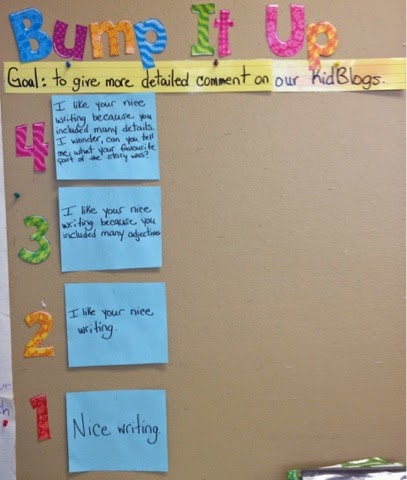 Bump It Up
Goal: to give more detailed comment on our KidBlogs.
4
I like your nice
writing because you
included many details.
I wonder, can you tell
me, what your favourite
part of the story was?
3
I like your nice
writing because you
included many adjectives
2
I like your nice
writing.
1
Nice writing.